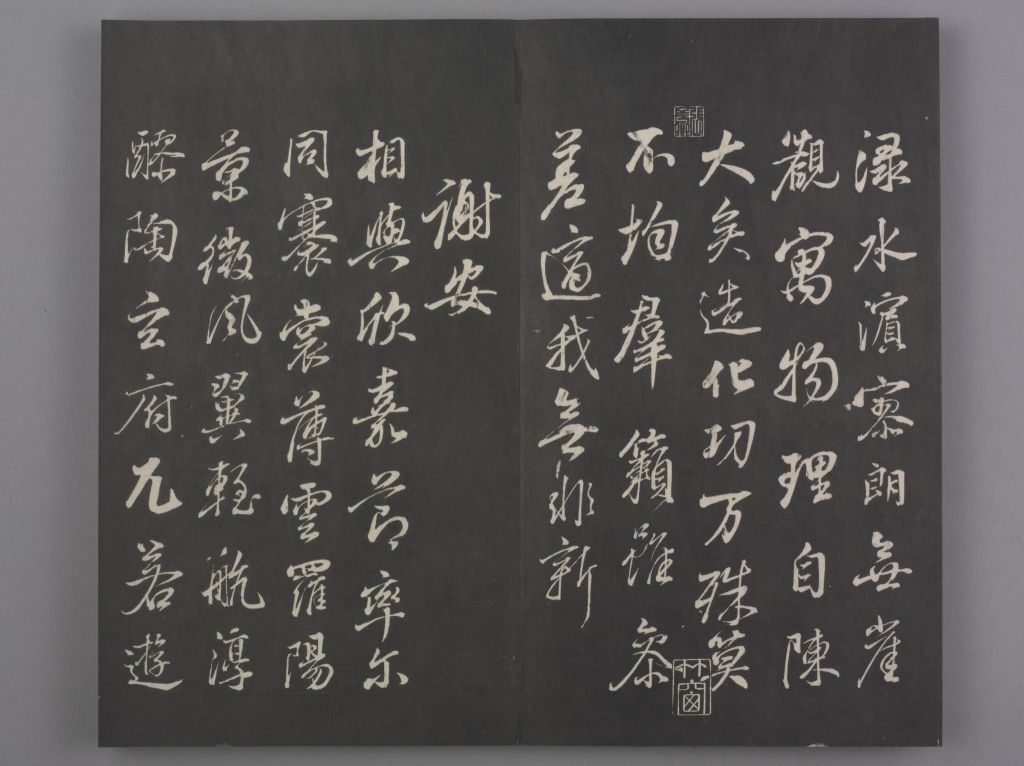 渌水濱寥朗無崖
觀寓物理自陳
大矣造化功万殊莫
不均羣籟雖參
差適我無非新
謝安
相與欣嘉節率尔
同褰裳薄雲羅陽
景微風翼輕航淳
醪陶玄府兀若遊
竹窗